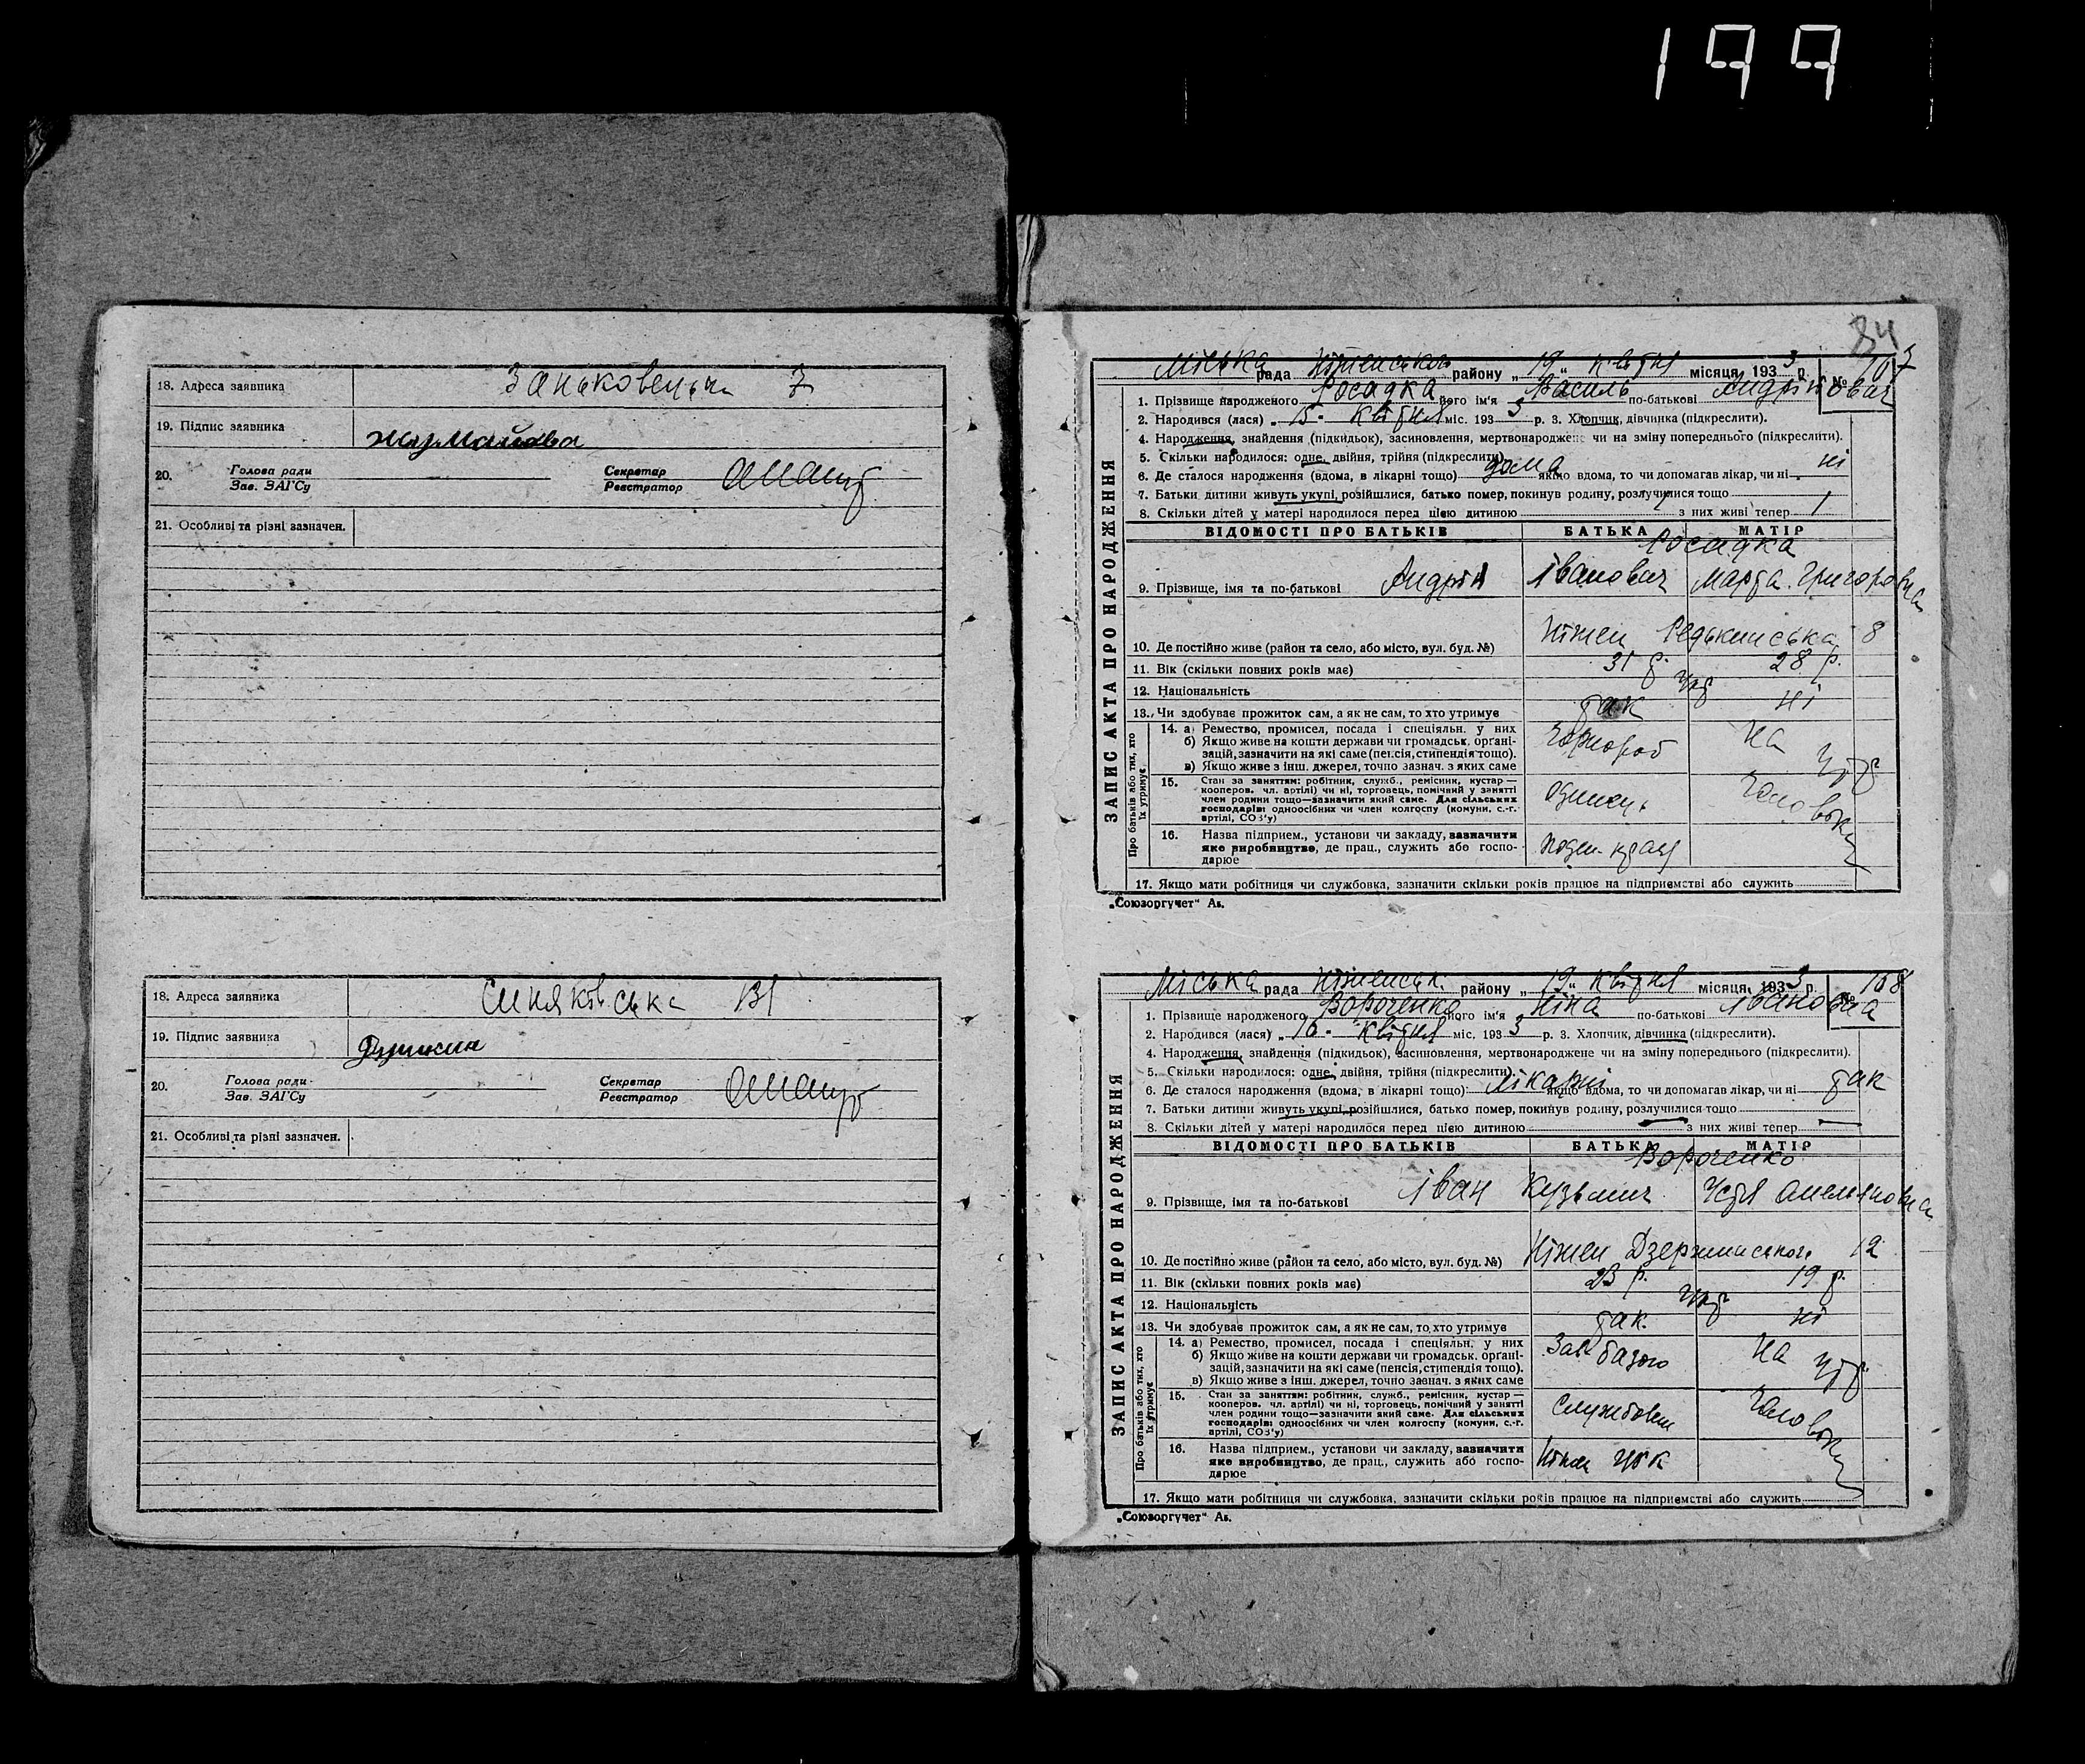 199
18. Адреса заявника Заньковецька 7
19. Підпис заявника
20. Голова ради Секретар
Зав. ЗАГСу Реєстратор
21. Особливі та різні зазначен.
18. Адреса заявника Синяківська 131
19. Підпис заявника
20. Голова ради Секретар
Зав. ЗАГСу Реєстратор
21. Особливі та різні зазначен.
84
ЗАПИС АКТА ПРО НАРОДЖЕННЯ
Міська рада Ніженськ району „19“ квітня місяця 1933 р. № 167
1. Прізвище народженого Росадка його ім'я Василь по-батькові Андрійович
2. Народився (лася) „15- квітня міс. 1933 р. 3. Хлопчик, дівчинка (підкреслити).
4. Народження, знайдення (підкидьок), засиновлення, мертвонароджене чи на зміну попереднього (підкреслити).
5. Скільки народилося: одне, двійня, трійня (підкреслити)
6. Де сталося народження (вдома, в лікарні тощо) дома якщо вдома, то чи допомагав лікар, чи ні ні
7. Батьки дитини живуть укупі, розійшлися, батько помер, покинув родину, розлучилися тощо
8. Скільки дітей у матері народилося перед цією дитиною 1 з них живі тепер 1
ВІДОМОСТІ ПРО БАТЬКІВ БАТЬКА МАТІР
Росадка
9. Прізвище, імя та по-батькові Андрій Іванович Марта Григоровна
10. Де постійно живе (район та село, або місто, вул. буд. №) Ніжен Редькинська 8
11. Вік (скільки повних років має) 31 р. 28 р.
12. Національність Укр
13. Чи здобуває прожиток сам, а як не сам, то хто утримує так ні
Про батьків або тих, хто їх утримує
14. а) Ремество, промисел, посада і спеціяльн. у них Чорнороб На утр
б) Якщо живе на кошти держави чи громадськ. органі-
зацій, зазначити на які саме (пенсія, стипендія тощо).
в) Якщо живе з інш. джерел, точно зазнач. з яких саме
15. Стан за заняттям: робітник, служб., ремісник, кустар — одинець Чоловіка
кооперов. чл. артілі) чи ні, торговець, помічний у занятті
член родини тощо—зазначити який саме. Для сільських
господарів: одноосібних чи член колгоспу (комуни, с.-г.
артілі, СОЗ'у)
16. Назва підприєм., установи чи закладу, зазначити
яке виробництво, де прац., служить або госпо-
дарює
17. Якщо мати робітниця чи службовка, зазначити скільки років працює на підприємстві або служить
„Союзоргучет“ Ав.
ЗАПИС АКТА ПРО НАРОДЖЕННЯ
Міська рада Ніженськ. району „19“ квітня місяця 1933 р. № 168
1. Прізвище народженого Вороченко його ім'я Ніна по-батькові Івановна
2. Народився (лася) „16- квітня міс. 1933 р. 3. Хлопчик, дівчинка (підкреслити).
4. Народження, знайдення (підкидьок), засиновлення, мертвонароджене чи на зміну попереднього (підкреслити).
5. Скільки народилося: одне, двійня, трійня (підкреслити).
6. Де сталося народження (вдома, в лікарні тощо): лікарні якщо вдома, то чи допомагав лікар, чи ні так
7. Батьки дитини живуть укупі, розійшлися, батько помер, покинув родину, розлучилися тощо
8. Скільки дітей у матері народилося перед цією дитиною — з них живі тепер —
ВІДОМОСТІ ПРО БАТЬКІВ БАТЬКА МАТІР
Вороченко
9. Прізвище, імя та по-батькові Іван Кузьмич Устя Омеляновна
10. Де постійно живе (район та село, або місто, вул. буд. №) Ніжен Дзержинского 12
11. Вік (скільки повних років має) 23 р. 19 р.
12. Національність Укр
13. Чи здобуває прожиток сам, а як не сам, то хто утримує так. ні
Про батьків або тих, хто їх утримує
14. а) Ремество, промисел, посада і спеціяльн. у них Зав базою На утр
б) Якщо живе на кошти держави чи громадськ. органі-
зацій, зазначити на які саме (пенсія, стипендія тощо).
в) Якщо живе з інш. джерел, точно зазнач. з яких саме
15. Стан за заняттям: робітник, служб., ремісник, кустар — Службовец Чоловіка
кооперов. чл. артілі) чи ні, торговець, помічний у занятті
член родини тощо—зазначити який саме. Для сільських
господарів: одноосібних чи член колгоспу (комуни, с.-г.
артілі, СОЗ'у)
16. Назва підприєм., установи чи закладу, зазначити
яке виробництво, де прац., служить або госпо-
дарює
17. Якщо мати робітниця чи службовка, зазначити скільки років працює на підприємстві або служить
„Союзоргучет“ Ав.